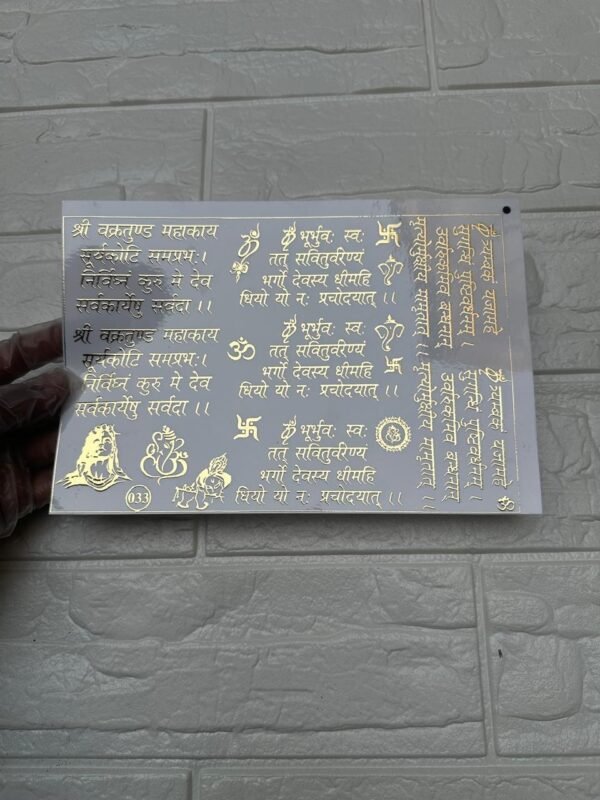 श्री वक्रतुण्ड महाकाय
सूर्यकोटि समप्रभः।
निर्विघ्नं कुरु मे देव
सर्वकार्येषु सर्वदा ।।
श्री वक्रतुण्ड महाकाय
सूर्यकोटि समप्रभः।
निर्विघ्नं कुरु मे देव
सर्वकार्येषु सर्वदा ।।
033
ॐ
ॐ
ॐ भूर्भुवः स्वः
तत् सवितुर्वरेण्यं
भर्गो देवस्य धीमहि
धियो यो नः प्रचोदयात् ।।
ॐ भूर्भुवः स्वः
तत् सवितुर्वरेण्यं
भर्गो देवस्य धीमहि
धियो यो नः प्रचोदयात् ।।
ॐ भूर्भुवः स्वः
तत् सवितुर्वरेण्यं
भर्गो देवस्य धीमहि
धियो यो नः प्रचोदयात् ।।
ॐ त्र्यम्बकं यजामहे
सुगन्धिं पुष्टिवर्धनम् ।
उर्वारुकमिव बन्धनान्
मृत्योर्मुक्षीय मामृतात् ।।
ॐ त्र्यम्बकं यजामहे
सुगन्धिं पुष्टिवर्धनम् ।
उर्वारुकमिव बन्धनान्
मृत्योर्मुक्षीय मामृतात् ।।
ॐ